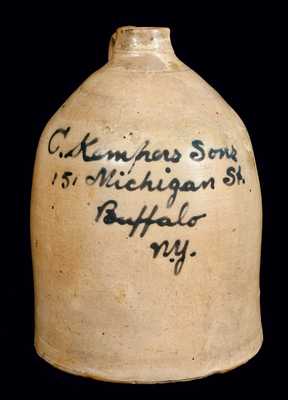 C. Kempers Sons
151 Michigan St.
Buffalo
N.Y.